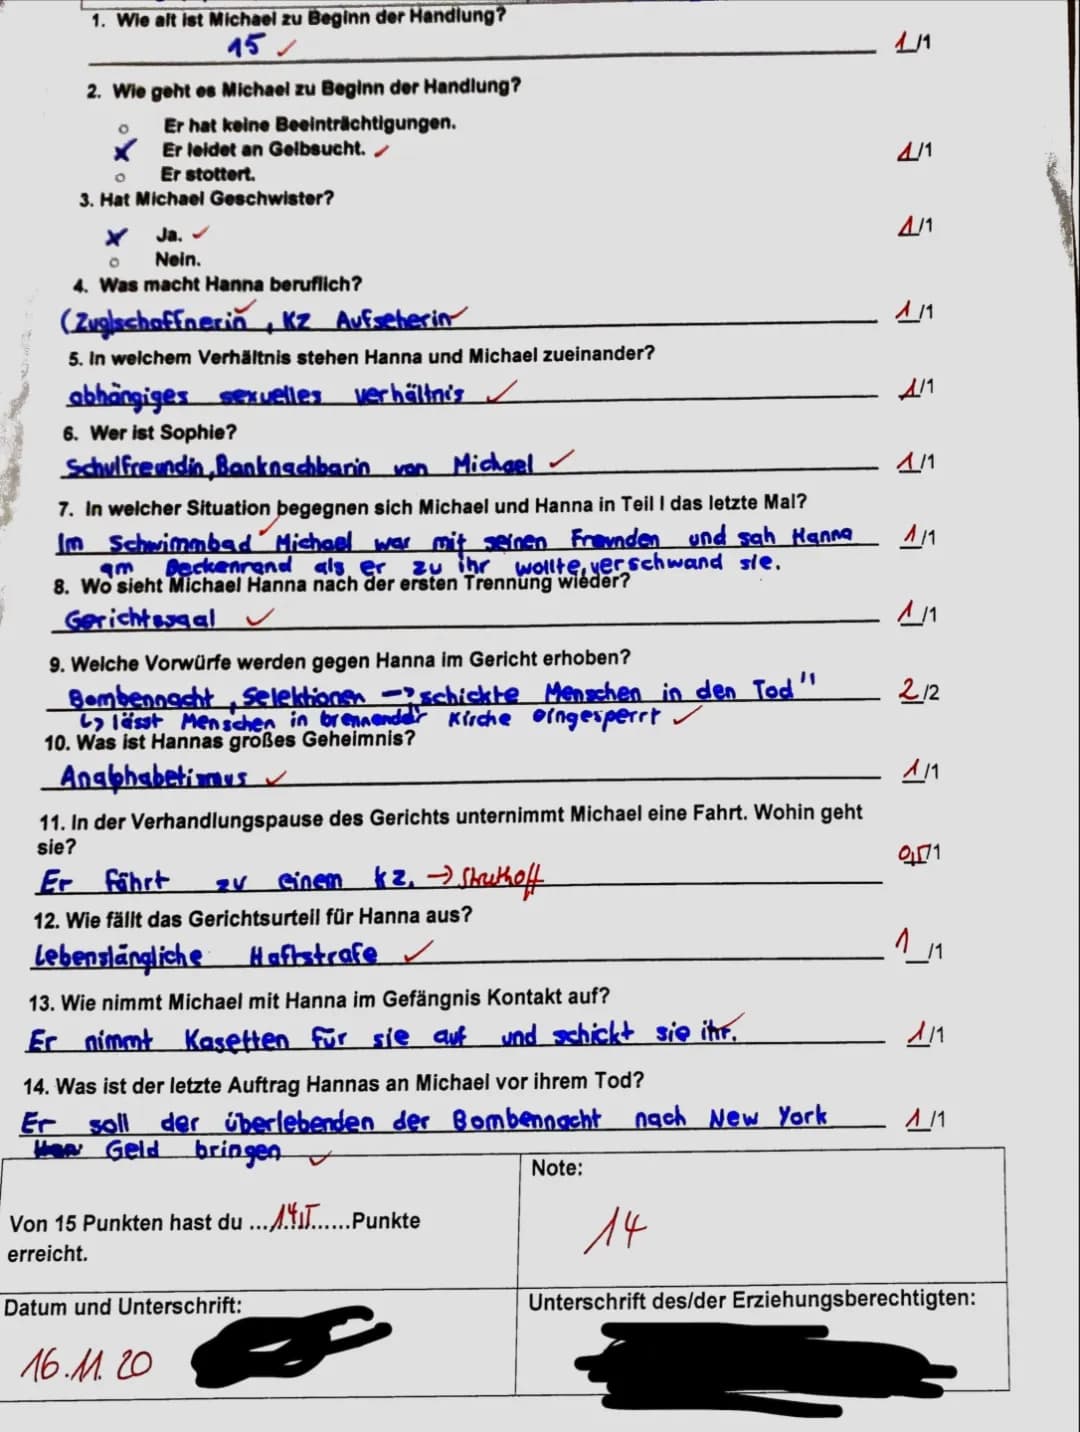 1. Wie alt ist Michael zu Beginn der Handlung?
15 ✓
1/1
2. Wie geht es Michael zu Beginn der Handlung?
Er hat keine Beeinträchtigungen.
Er leidet an Gelbsucht. ✓
1/1
Er stottert.
3. Hat Michael Geschwister?
Ja. ✓
1/1
Nein.
4. Was macht Hanna beruflich?
(Zug)schaffnerin, KZ Aufseherin
1/1
5. In welchem Verhältnis stehen Hanna und Michael zueinander?
abhängiges sexuelles verhältnis ✓
1/1
6. Wer ist Sophie?
Schulfreundin, Banknachbarin von Michael ✓
1/1
7. In welcher Situation begegnen sich Michael und Hanna in Teil I das letzte Mal?
Im Schwimmbad Michael war mit seinen Freunden und sah Hanna
1/1
am Beckenrand als er zu ihr wollte, verschwand sie.
8. Wo sieht Michael Hanna nach der ersten Trennung wieder?
Gerichtssaal ✓
1/1
9. Welche Vorwürfe werden gegen Hanna im Gericht erhoben?
Bombennacht, Selektionen → schickte Menschen in den Tod"
2/2
↳ lässt Menschen in brennender Kirche eingesperrt ✓
10. Was ist Hannas großes Geheimnis?
Analphabetismus ✓
1/1
11. In der Verhandlungspause des Gerichts unternimmt Michael eine Fahrt. Wohin geht
sie?
0,5/1
Er fährt zu einem kz. → Struthoff
12. Wie fällt das Gerichtsurteil für Hanna aus?
Lebenslängliche Haftstrafe ✓
1/1
13. Wie nimmt Michael mit Hanna im Gefängnis Kontakt auf?
Er nimmt Kasetten für sie auf und schickt sie ihr.
1/1
14. Was ist der letzte Auftrag Hannas an Michael vor ihrem Tod?
Er soll der überlebenden der Bombennacht nach New York
1/1
Geld bringen ✓
Note:
Von 15 Punkten hast du ...14,5......Punkte
erreicht.
14
Datum und Unterschrift:
Unterschrift des/der Erziehungsberechtigten:
16.11.20